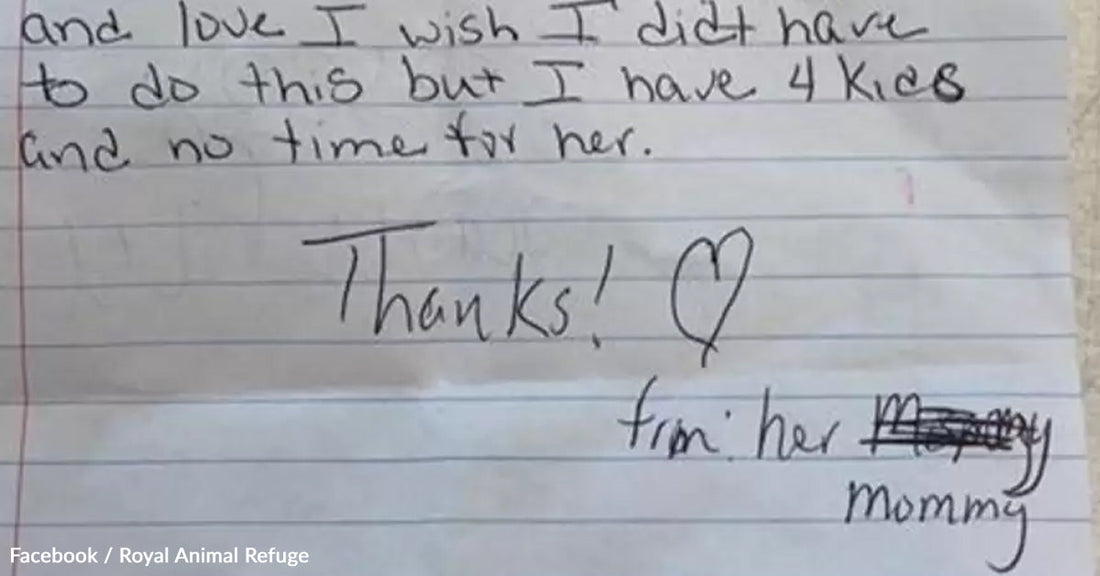 and love I wish I didt have
to do this but I have 4 kids
and no time for her.
Thanks! ♡
frm: her
mommy
Facebook / Royal Animal Refuge